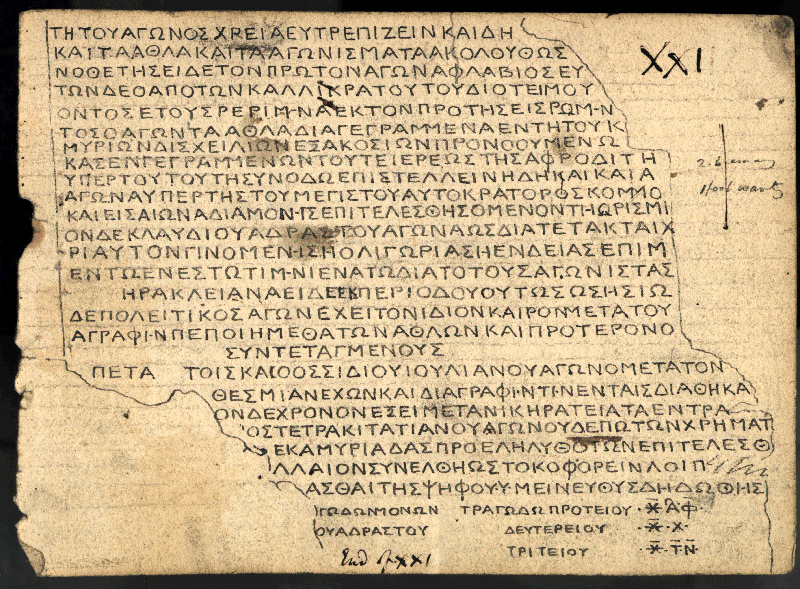 ΤΗΤΟΥΑΓΩΝΟΣΧΡΕΙΑΕΥΤΡΕΠΙΖΕΙΝΚΑΙΔΗ
ΚΑΙΤΑΑΘΛΑΚΑΙΤΑΑΓΩΝΙΣΜΑΤΑΑΚΟΛΟΥΘΩΣ
ΝΟΘΕΤΗΣΕΙΔΕΤΟΝΠΡΩΤΟΝΑΓΩΝΑΦΛΑΒΙΟΣΕΥ
ΤΩΝΔΕΟΑΠΟΤΩΝΚΑΛΛΙΚΡΑΤΟΥΤΟΥΔΙΟΤΕΙΜΟΥ
ΟΝΤΟΣΕΤΟΥΣΡΕΡΙΜ·ΝΑΕΚΤΟΝΠΡΟΤΗΣΕΙΣΡΩΜ·Ν
ΤΟΣΟΑΓΩΝΤΑΑΘΛΑΔΙΑΓΕΓΡΑΜΜΕΝΑΕΝΤΗΤΟΥΚ
ΜΥΡΙΩΝΔΙΣΧΕΙΛΙΩΝΕΞΑΚΟΣΙΩΝΠΡΟΝΟΟΥΜΕΝΩ
ΚΑΣΕΝΓΕΓΡΑΜΜΕΝΩΝΤΟΥΤΕΙΕΡΕΩΣΤΗΣΑΦΡΟΔΙΤΗ
ΥΠΕΡΤΟΥΤΟΥΤΗΣΥΝΟΔΩΕΠΙΣΤΕΛΛΕΙΝΗΔΗΚΑΙΚΑΤΑ
ΑΓΩΝΑΥΠΕΡΤΗΣΤΟΥΜΕΓΙΣΤΟΥΑΥΤΟΚΡΑΤΟΡΟΣΚΟΜΜΟ
ΚΑΙΕΙΣΑΙΩΝΑΔΙΑΜΟΝ·ΙΣΕΠΙΤΕΛΕΣΘΗΣΟΜΕΝΟΝΤΗΩΡΙΣΜΙ
ΟΝΔΕΚΛΑΥΔΙΟΥΑΔΡΑΣΤΟΥΑΓΩΝΑΩΣΔΙΑΤΕΤΑΚΤΑΙΧ
ΡΙΑΥΤΟΝΓΙΝΟΜΕΝ·ΙΣΗΟΛΙΓΩΡΙΑΣΗΕΝΔΕΙΑΣΕΠΙΜ
ΕΝΤΩΕΝΕΣΤΩΤΙΜ·ΝΙΕΝΑΤΩΔΙΑΤΟΤΟΥΣΑΓΩΝΙΣΤΑΣ
ΗΡΑΚΛΕΙΑΝΑΕΙΔΕΕΚΠΕΡΙΟΔΟΥΟΥΤΩΣΩΣΗΣΙΩ
ΔΕΠΟΛΕΙΤΙΚΟΣΑΓΩΝΕΧΕΙΤΟΝΙΔΙΟΝΚΑΙΡΟΝΜΕΤΑΤΟΥ
ΑΓΡΑΦΙ·ΝΠΕΠΟΙΗΜΕΘΑΤΩΝΑΘΛΩΝΚΑΙΠΡΟΤΕΡΟΝΟ
ΣΥΝΤΕΤΑΓΜΕΝΟΥΣ
ΠΕΤΑ ΤΟΙΣΚΑΙΟΟΣΣΙΔΙΟΥΙΟΥΛΙΑΝΟΥΑΓΩΝΟΜΕΤΑΤΟΝ
ΘΕΣΜΙΑΝΕΧΩΝΚΑΙΔΙΑΓΡΑΦΙ·ΝΤΙ·ΝΕΝΤΑΙΣΔΙΑΘΗΚΑ
ΟΝΔΕΧΡΟΝΟΝΕΞΕΙΜΕΤΑΝΙΚΗΡΑΤΕΙΑΤΑΕΝΤΡΑ
ΟΣΤΕΤΡΑΚΙΤΑΤΙΑΝΟΥΑΓΩΝΟΥΔΕΠΩΤΩΝΧΡΗΜΑΤ
ΑΕΚΑΜΥΡΙΑΔΑΣΠΡΟΕΛΗΛΥΘΟΤΩΝΕΠΙΤΕΛΕΣΘ
ΛΛΑΙΟΝΣΥΝΕΛΘΗΩΣΤΟΚΟΦΟΡΕΙΝΛΟΙΠ
ΑΣΘΑΙΤΗΣΨΗΦΟΥΥΜΕΙΝΕΥΘΥΣΔΗΔΩΘΗΣ
ΓΩΔΩΝΜΟΝΩΝ ΤΡΑΓΩΔΩΠΡΩΤΕΙΟΥ ·Ӿ·Α·Φ·
ΟΥΑΔΡΑΣΤΟΥ ΔΕΥΤΕΡΕΙΟΥ ·Ӿ·Χ·
ΤΡΙΤΕΙΟΥ ·Ӿ·Τ·Ν·
End of XXI
XXI